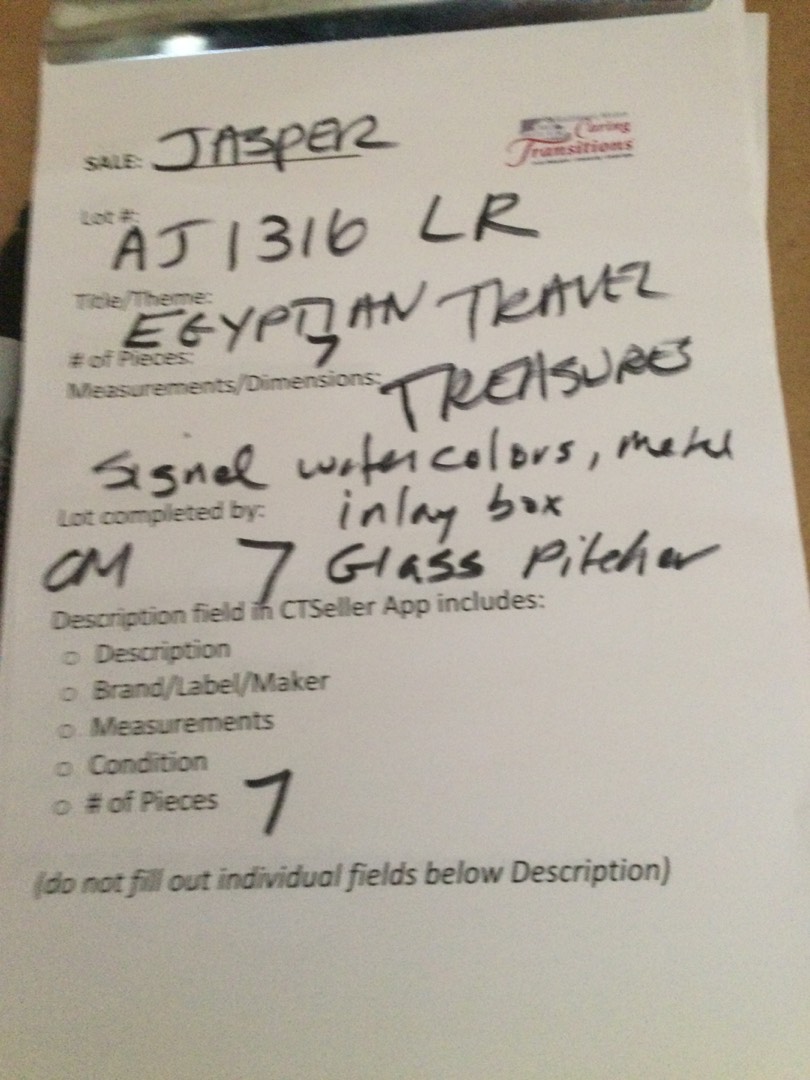 SALE: JASPER
Caring
Transitions
Lot #:
AJ1316 LR
Title/Theme:
EGYPTIAN TRAVEL
# of Pieces: 7
Measurements/Dimensions: TREASURES
Signed watercolors, metal
Lot completed by: inlay box
CM 7 Glass Pitcher
Description field in CTSeller App includes:
○ Description
○ Brand/Label/Maker
○ Measurements
○ Condition
○ # of Pieces 7
(do not fill out individual fields below Description)